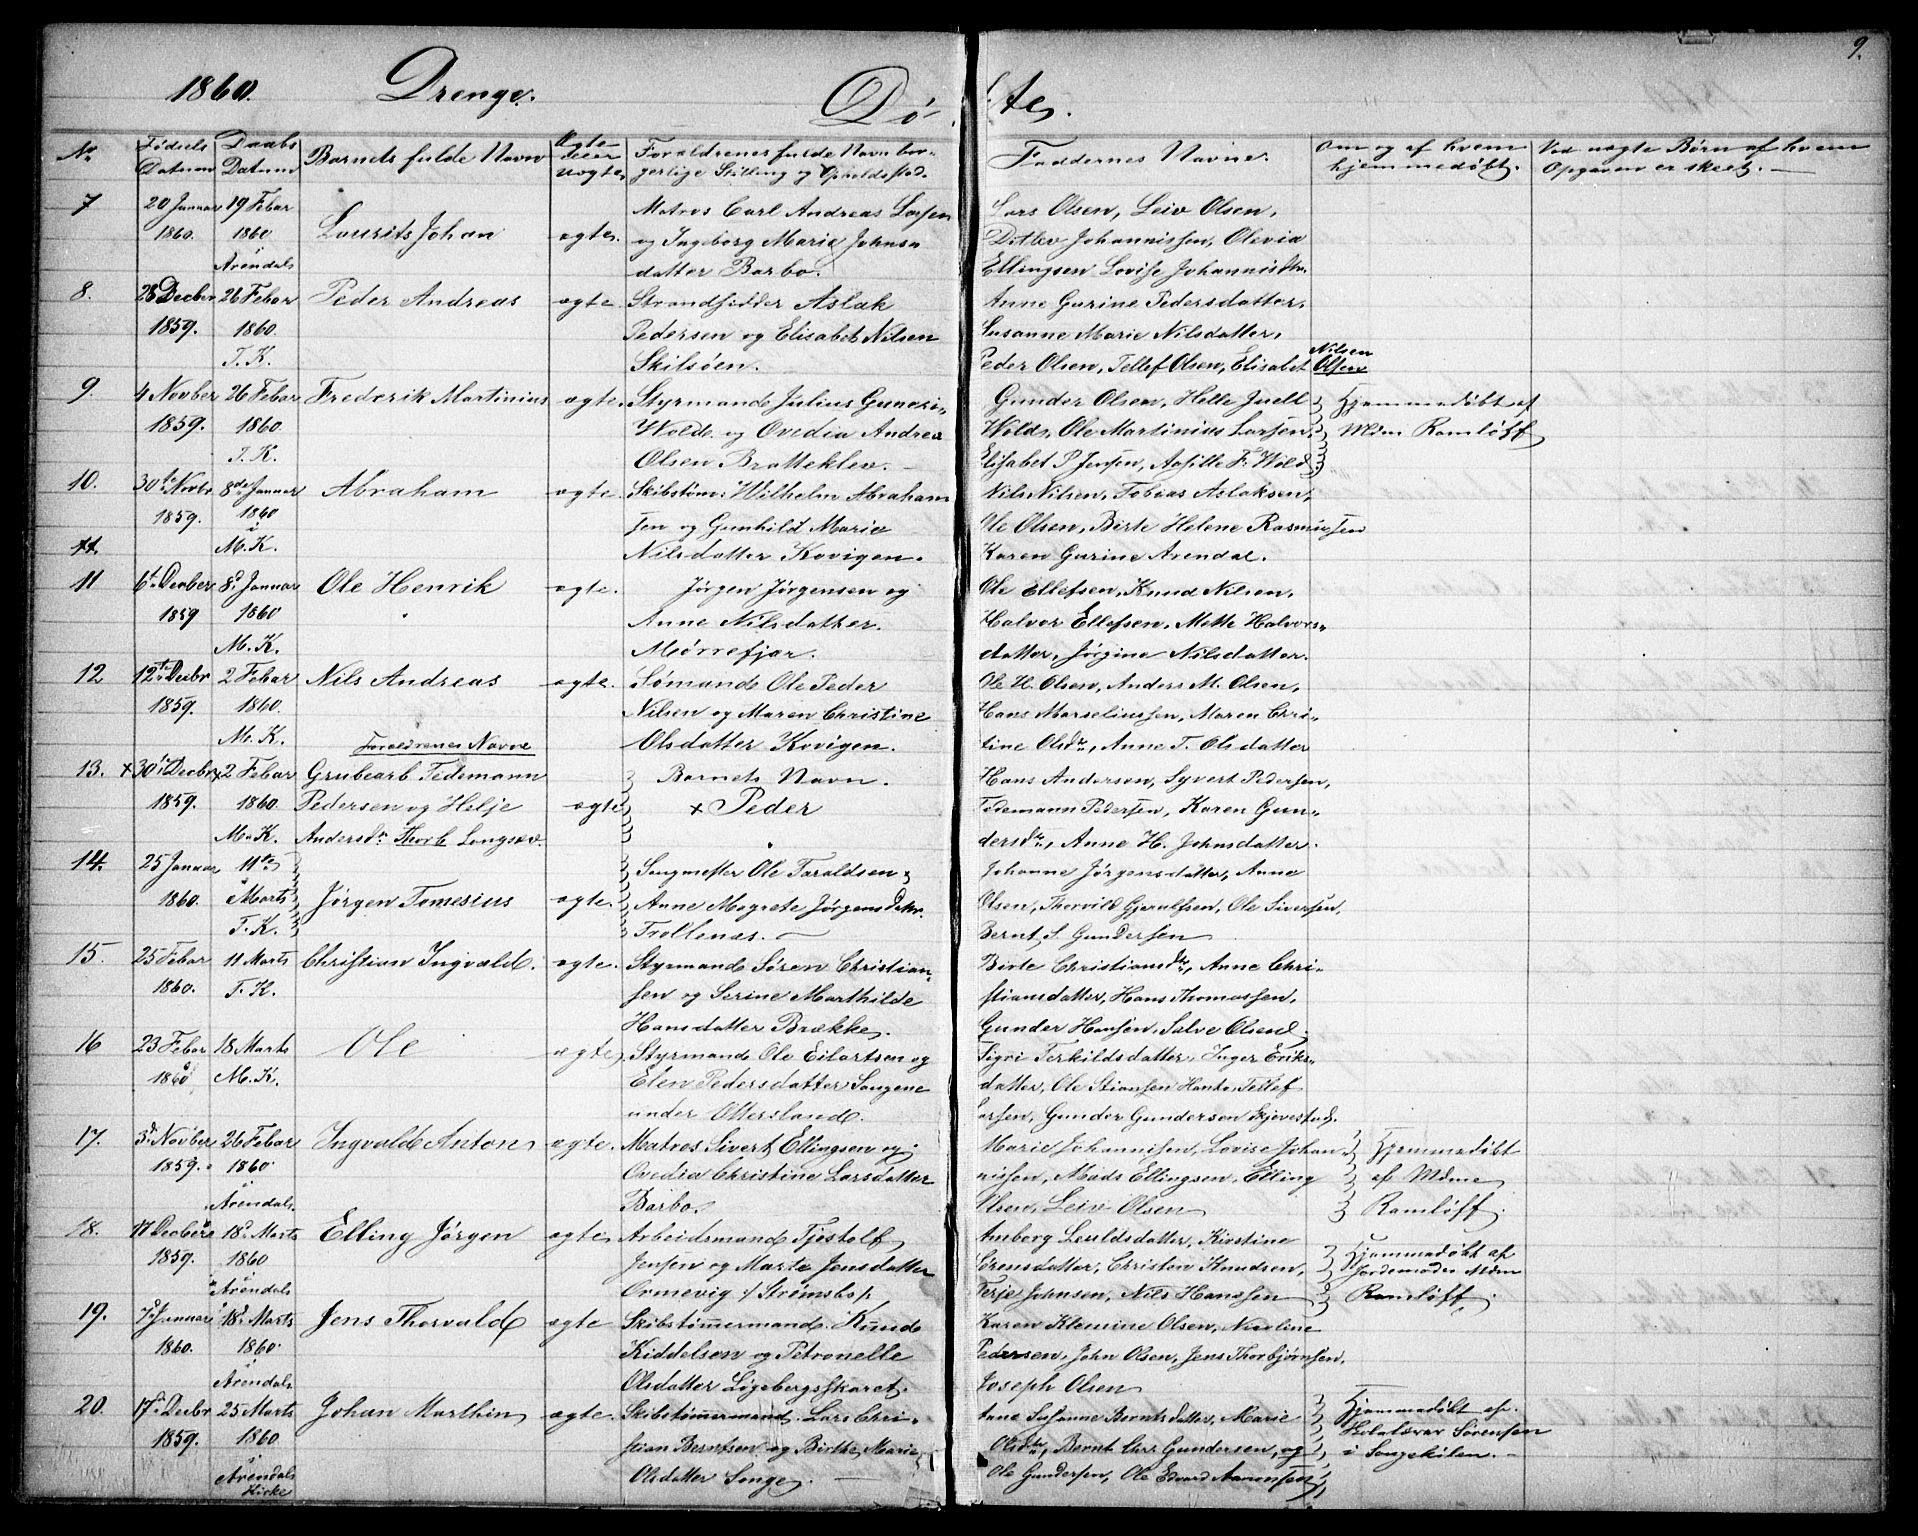 9.
1860. Drenge. Dø- -te.
No. Fødsels Datum Daabs Datum Barnets fulde Navn Ægte eller uægte Forældrenes fulde Navn bor- gerlige Stilling og Opholdsted. Faddernes Navne. Om og af hvem hjemmedøbt. Ved uægte Børn af hvem Opgaven er skeet. —
7 20 Januar 19 Febar Matros Carl Andreas Larsen Lars Olsen, Leiv Olsen,
1860. 1860 Laurits Johan ægte. og Ingeborg Marie Johns- Ditlev Johannissen, Olevia
i Arendal datter Barbo. Ellingsen Lovise Johannisdtr.
8. 28 Decber 26 Febar Peder Andreas ægte. Strandsidder Aslak Anne Gurine Pedersdatter,
1859. 1860. Pedersen og Elisabet Nilsen Susanne Marie Nilsdatter,
T. K. Skilsöen. Peder Olsen, Tellef Olsen, Elisabet Nilsen Olsen
9. 4 Novber 26 Febar Frederik Martinius ægte. Styrmand Julius Guneri- Gunder Olsen, Helle Juell Hjemmedøbt af
1859. 1860. Wold og Ovedia Andrea Wold, Ole Martinius Larsen, Mdm Ramløff
T. K. Olsen Bratteklev. — Elisabet P Jensen, F. Wold
10. 30te Novbr 8de Januar Abraham ægte. Skibstøm: Wilhelm Abraham Nils Nilsen, Tobias Aslaksen,
1859. 1860 sen og Gunhild Marie Ole Olsen, Birte Helene Rasmussen
11. i M. K. Nilsdatter Kovigen. Karen Gurine Arendal.
11 6te Decber 8d Januar Ole Henrik ægte. Jørgen Jørgensen og Ole Ellefsen, Knud Nilsen,
1859 1860 Anne Nilsdatter. Halvor Ellefsen, Mette Halvors-
M. K. Mørrefjær. datter, Jørgine Nilsdatter.
12 12te Decbr 2 Febar Nils Andreas ægte. Sømand Ole Peder Ole H. Olsen, Anders M. Olsen,
1859. 1860. Nilsen og Maren Christine Hans Marseliussen, Maren Chri-
M. K. Forældrenes Navne Olsdatter Kovigen. tine Olsdr., Anne T. Olsdatter
13. x30te Decbr x2 Febar Grubearb Tedemann Barnets Navn. Hans Anderson, Syvert Pedersen,
1859. 1860. Pedersen og Helje ægte x Peder Tedemann Pedersen, Karen Gun-
M. K. Andersdr. Thorb Longsæ. dersdtr., Anne H. Johnsdatter.
14. 25 Januar 11te Saugmester Ole Taraldsen Johanne Jørgensdatter, Anne
1860. Marts Jørgen Tomesius ægte. Anne Magrete Jørgensdattr. Olsen, Thorvild Gjerulfsen, Ole Siversen,
T. K. Trollenæs. — Bernt S. Gundersen
15. 25 Febar 11 Marts Christian Ingvald. ægte. Styrmand Sören Christian- Birte Christiansdtr., Anne Chri-
1860. T. K. sen og Serine Marthilde stiansdatter, Hans Thomassen,
Hansdatter Brække. Gunder Hansen, Salve Olsen.
16 23 Febar 18 Marts Ole ægte, Styrmand Ole Eilertsen og Sigri Terkildsdatter, Inger Eriks-
1860 M. K. Elen Pedersdatter Saugene datter, Ole Stiansen Hanto, Tellef
under Ottersland. Larsen, Gunder Gundersen Skjevestad.
17. 3d Novber 26 Febar Ingvald Anton ægte. Matros Sivert Ellingsen og Marie Johannisen, Lovise Johan- Hjemmedöbt
1859. 1860. Ovedia Christine Larsdatter nissen, Mads Ellingsen, Elling af Mdme
i Arendal. Barbo. Olsen, Leiv Olsen Ramløff.
18. 17 Decber 18d Marts Elling Jørgen ægte. Arbeidsmand Tjostolf Anborg Leuldsdatter, Kirstine Hjemmedøbt af
1859. 1860 Jensen og Marte Jensdatter Sörensdatter, Christen Knudsen, Jordemoder Mdm
i Arendal Ormevig :/ Strömsbo/: Terje Johnsen, Nils Hanssen Ramløff.
19. 7d Januar 18d Marts Jens Thorvald ægte Skibstømmermand Knud Karen Klemine Olsen, Nicoline
1860. 1860. Kiddelsen og Petronelle Pedersen, John Olsen, Jens Thorbjørnsen,
i Arendal Olsdatter Løgebergsskaret. Joseph Olsen
20. 17d Decbr 25 Marts Johan Marthin ægte. Skibstømmermand Lars Chri- Susanne Berntsdatter, Marie Hjemmedøbt af
1859. 1860 stian Berntsen og Birthe Marie Olsdtr., Bernt Chr. Gundersen, og Sørensen
i Arendals Kirke Olsdatter Songe. — Ole Gundersen, Ole Edvard Aamonsen i Songekilen. —